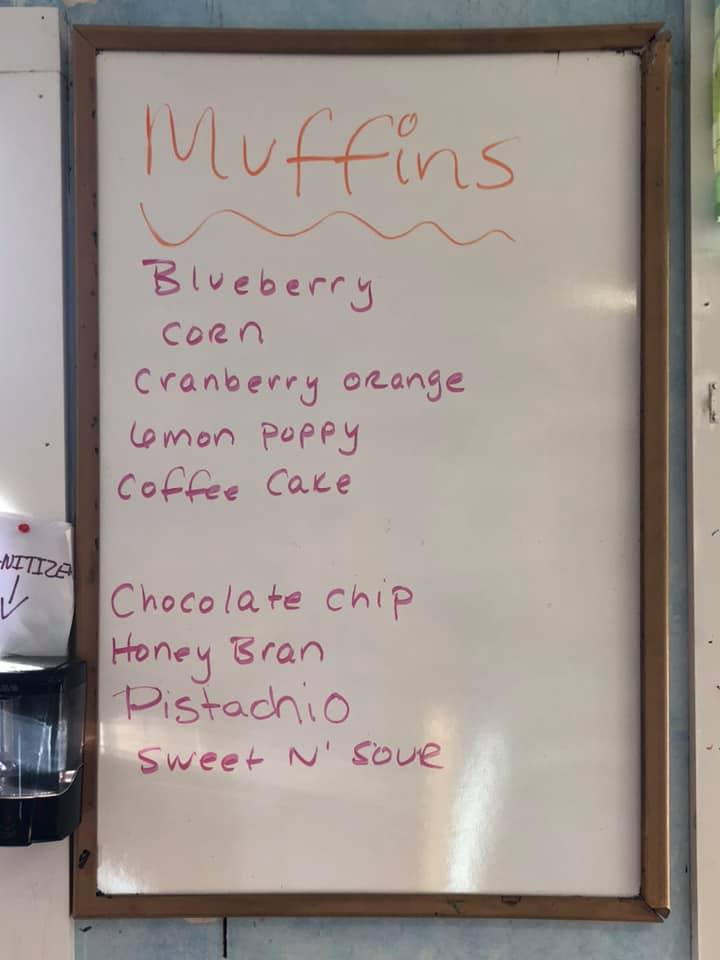 Muffins
Blueberry
CORN
Cranberry ORange
Lemon poppy
Coffee Cake
Chocolate chip
Honey Bran
Pistachio
Sweet N' SOUR
NITIZER